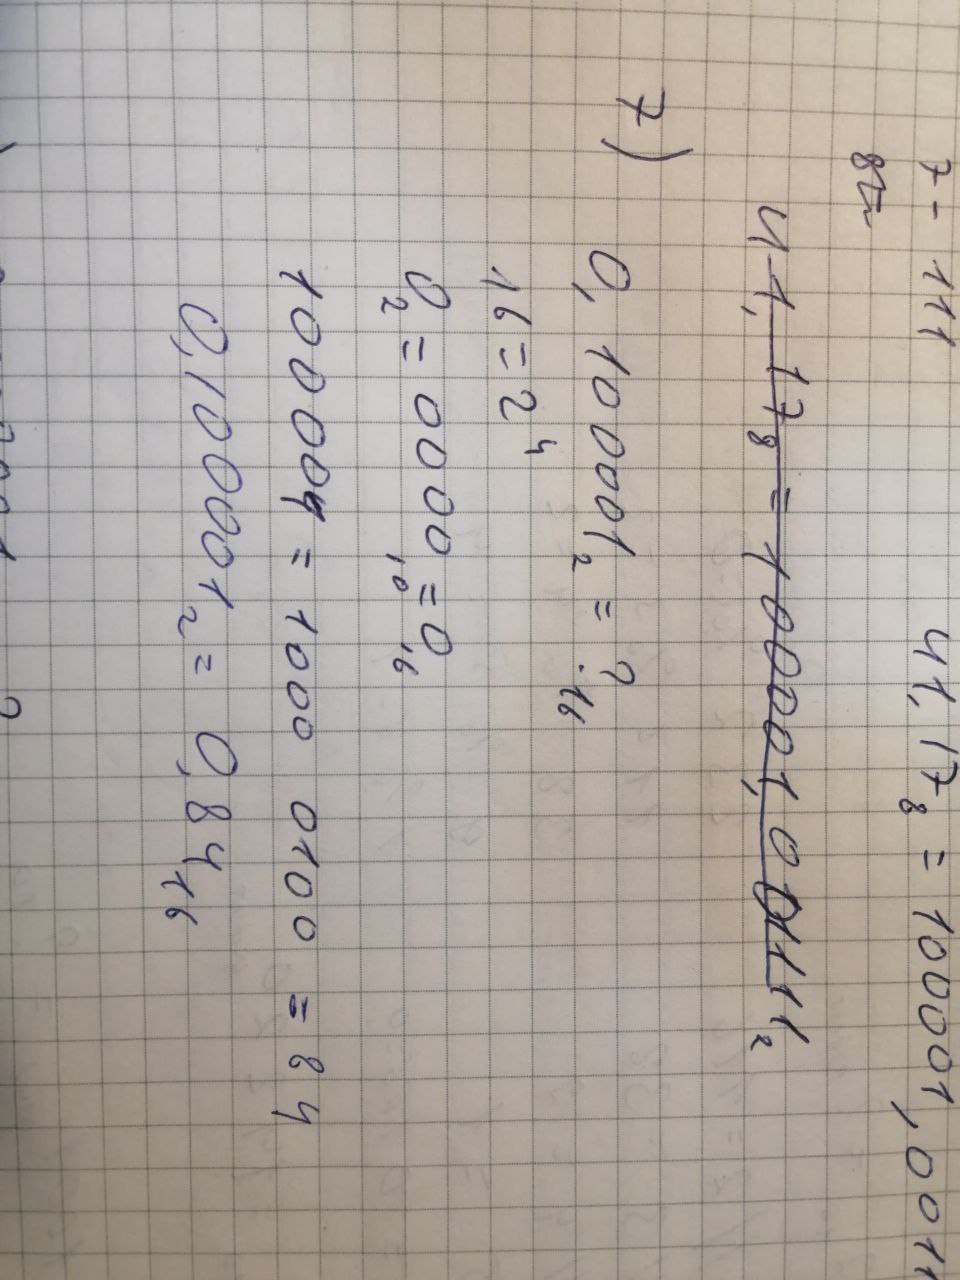 7 - 111
41,17₈ = 100001,0011
41,17₈ = 100001,001111₂
7)
0,100001₂ = ?₁₆
16 = 2⁴
0₂ = 0000₁₀ = 0₁₆
100004 = 1000 0100 = 84
0,100001₂ = 0,84₁₆